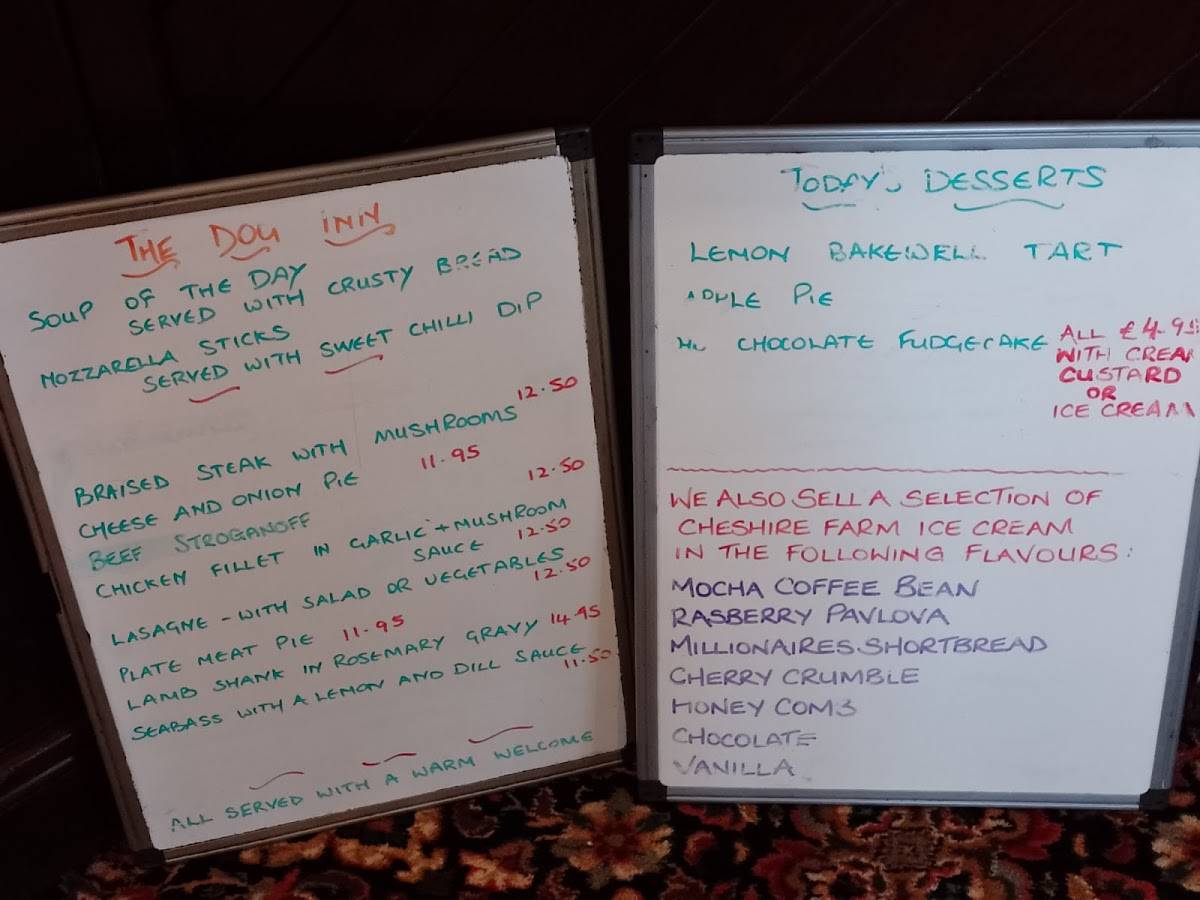 THE DOG INN
SOUP OF THE DAY
SERVED WITH CRUSTY BREAD
MOZZARELLA STICKS
SERVED WITH SWEET CHILLI DIP
BRAISED STEAK WITH MUSHROOMS 12.50
CHEESE AND ONION PIE 11.95
BEEF STROGANOFF 12.50
CHICKEN FILLET IN GARLIC + MUSHROOM
SAUCE 12.50
LASAGNE - WITH SALAD OR VEGETABLES
12.50
PLATE MEAT PIE 11.95
LAMB SHANK IN ROSEMARY GRAVY 14.95
SEABASS WITH A LEMON AND DILL SAUCE
11.50
ALL SERVED WITH A WARM WELCOME
TODAY'S DESSERTS
LEMON BAKEWELL TART
APPLE PIE
CHOCOLATE FUDGECAKE
ALL £4.95
WITH CREAM
CUSTARD
OR
ICE CREAM
WE ALSO SELL A SELECTION OF
CHESHIRE FARM ICE CREAM
IN THE FOLLOWING FLAVOURS:
MOCHA COFFEE BEAN
RASBERRY PAVLOVA
MILLIONAIRES SHORTBREAD
CHERRY CRUMBLE
HONEY COMB
CHOCOLATE
VANILLA